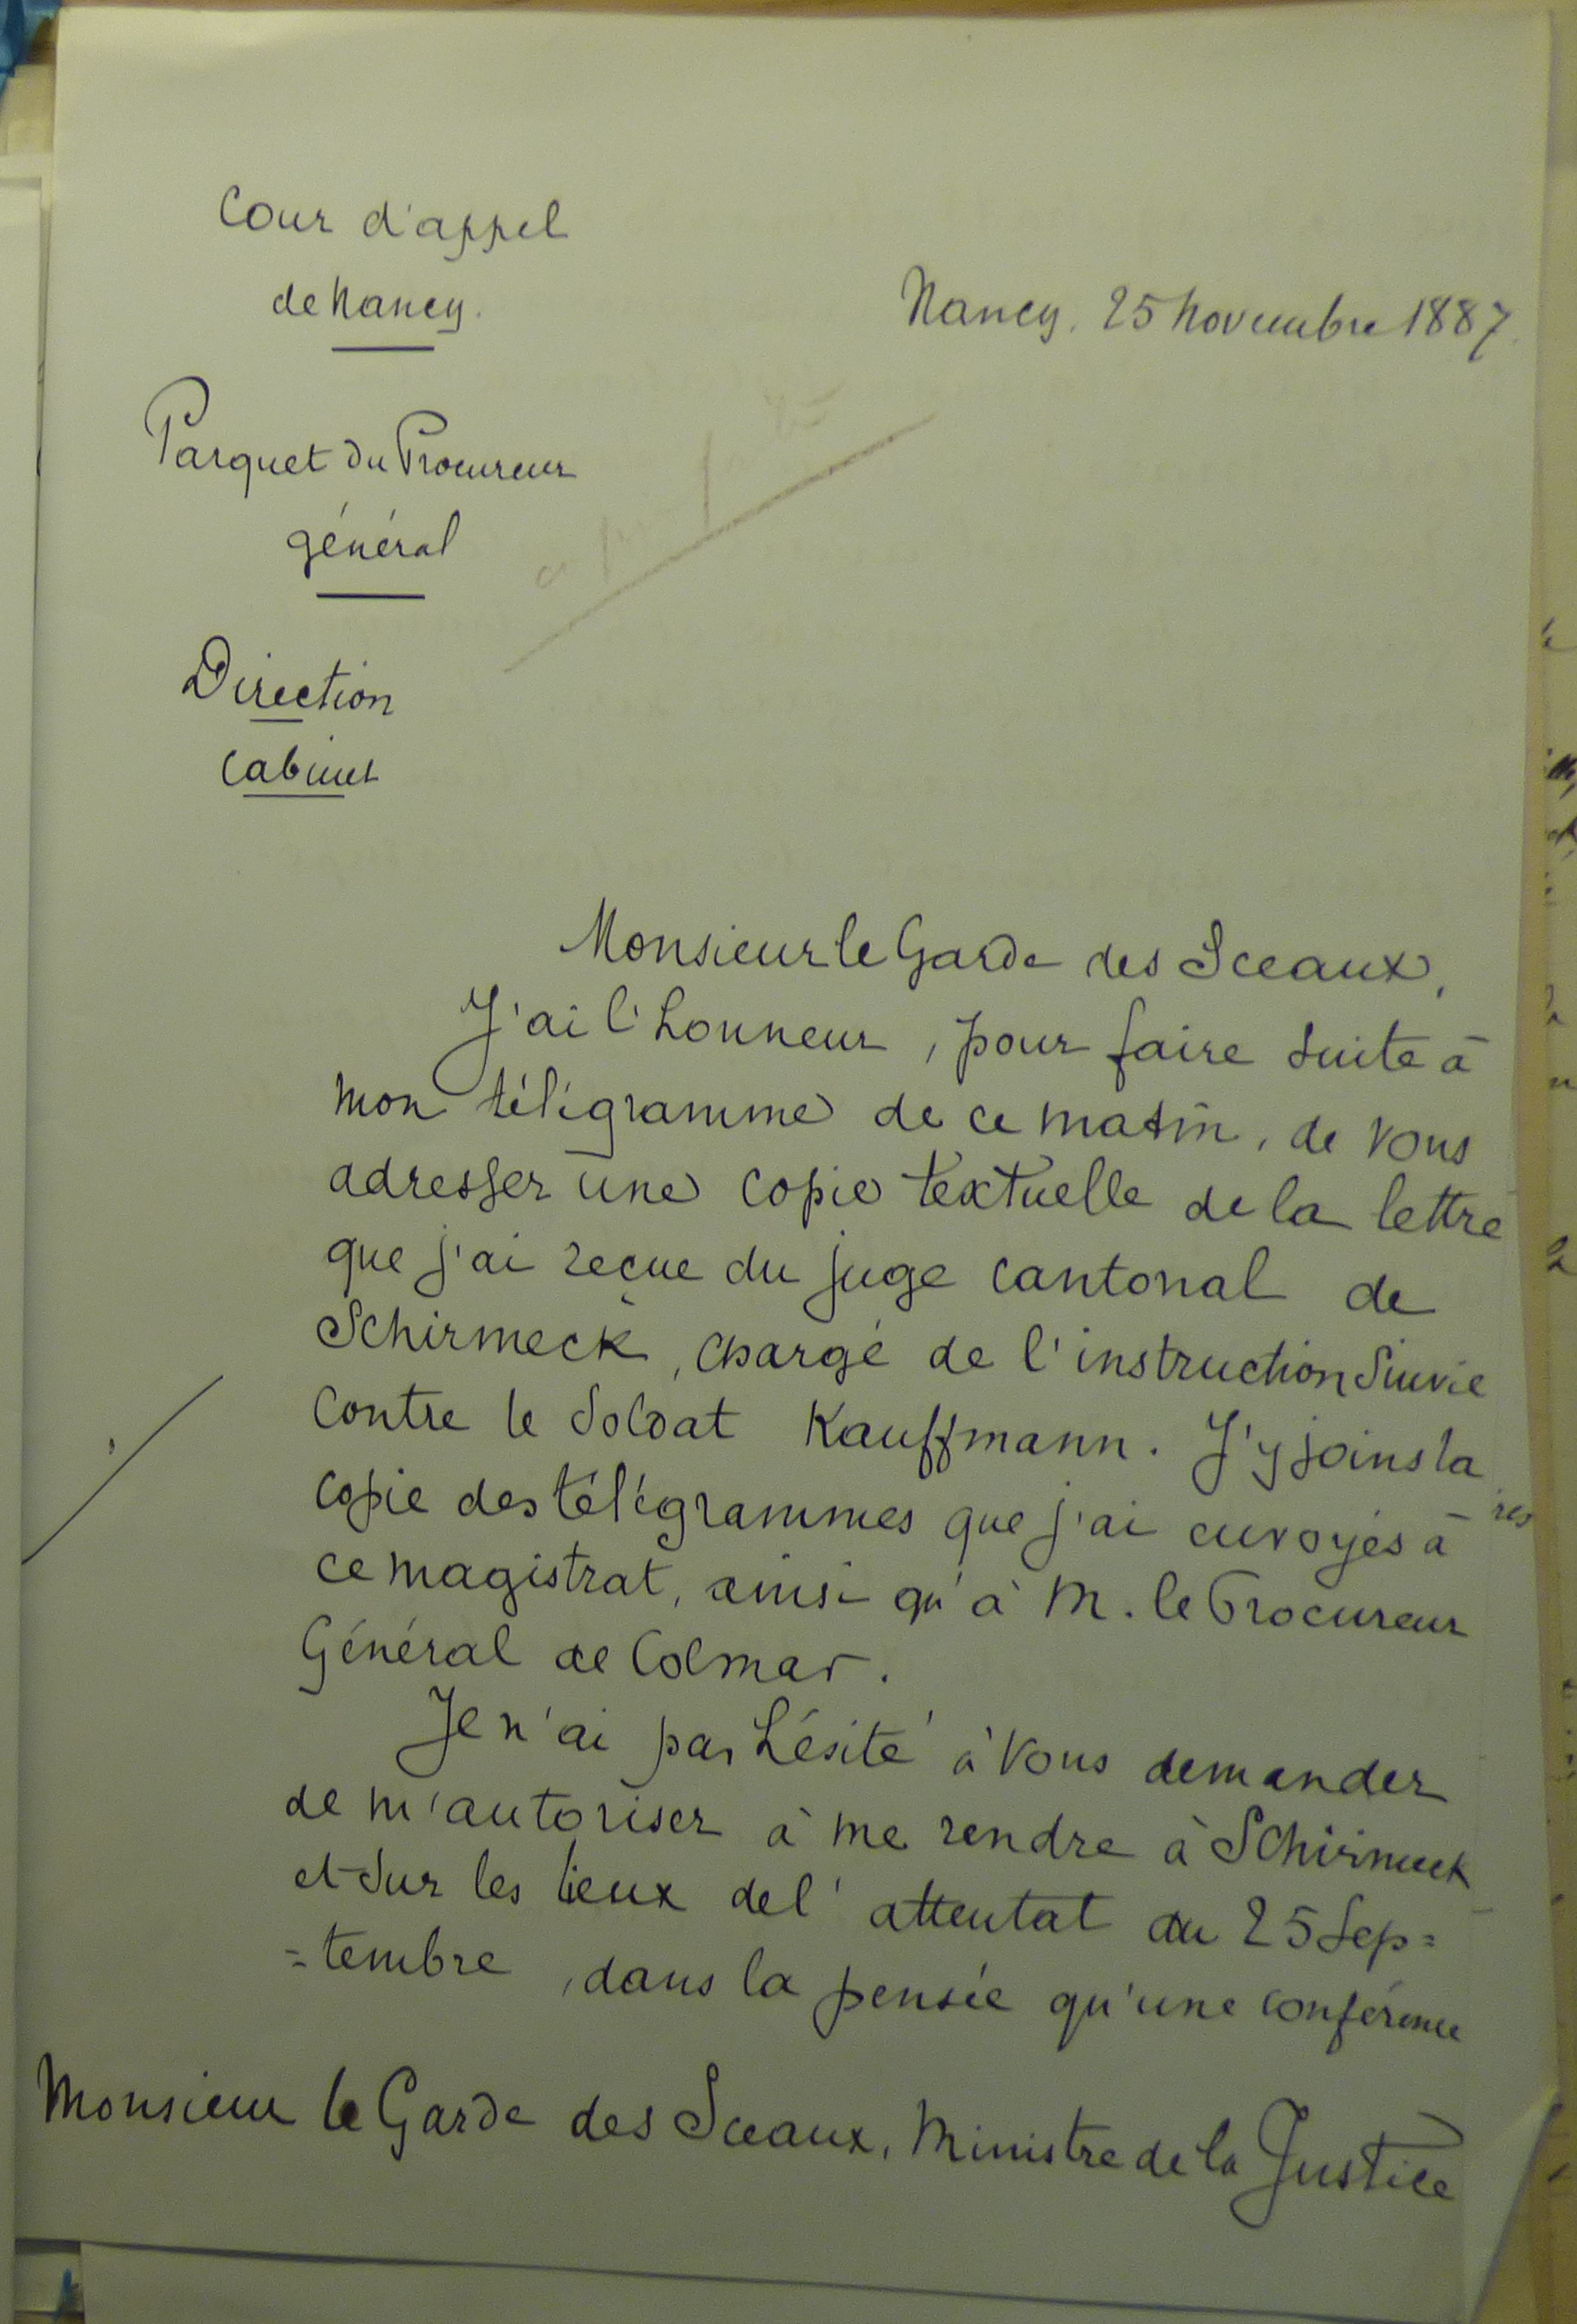 Cour d'appel
de Nancy.
Nancy. 25 Novembre 1887.
Parquet du Procureur
général
Direction
Cabinet
Monsieur le Garde des Sceaux,
J'ai l'honneur, pour faire suite à
mon télégramme de ce matin, de vous
adresser une copie textuelle de la lettre
que j'ai reçue du juge cantonal de
Schirmeck, chargé de l'instruction suivie
contre le soldat Kauffmann. J'y joins la
copie des télégrammes que j'ai envoyés à
ce magistrat, ainsi qu'à M. le Procureur
Général de Colmar.
Je n'ai pas hésité à vous demander
de m'autoriser à me rendre à Schirmeck
et sur les lieux de l'attentat du 25 Sep=
=tembre, dans la pensée qu'une conférence
Monsieur le Garde des Sceaux, Ministre de la Justice